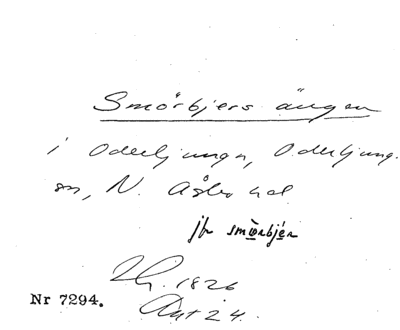 Smörbjers ängen
i Oderljunga, Oderljunga
sn, N. Åsbo hd.
jfr smörbjer
1826
Akt 24.
Nr 7294.